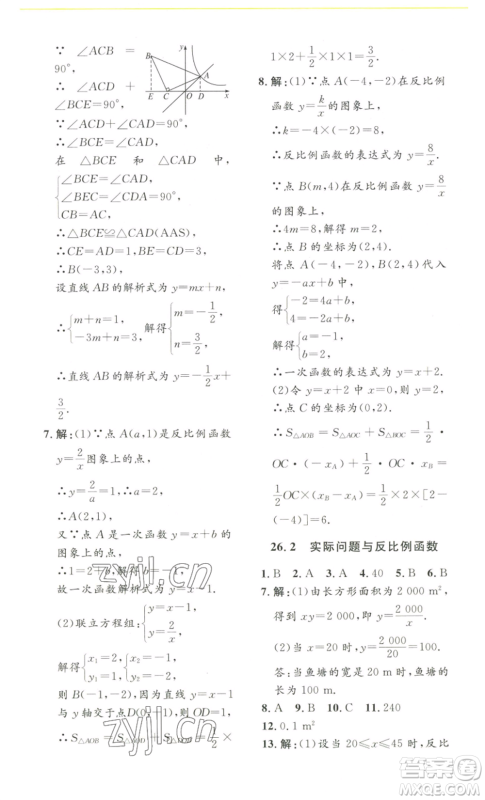 ∵ ∠ACB =
90°,
∴ ∠ACD +
∠BCE=90°.
∵∠ACD+∠CAD=90°,
∴∠BCE=∠CAD.
在 △BCE 和 △CAD 中,
{∠BCE=∠CAD,
∠BEC=∠CDA=90°,
CB=AC,
∴△BCE≌△CAD(AAS),
∴CE=AD=1,BE=CD=3,
∴B(-3,3),
设直线 AB 的解析式为 y=mx+n,
∴{m+n=1, -3m+n=3, 解得{m=-1/2, n=3/2.
∴直线 AB 的解析式为 y=-1/2x+
3/2.
7.解:(1)∵点 A(a,1)是反比例函数
y=2/x图象上的点,
∴y=2/a=1,
∴a=2,∴A(2,1).
又∵点 A 是一次函数 y=x+b
的图象上的点,
∴1=2+b,解得,b=-1,
故一次函数解析式为 y=x-1.
(2)联立方程组:{y=2/x, y=x-1,
解得{x₁=2, y₁=1, {x₂=-1, y₂=-2,
则 B(-1,-2),∵直线 y=x-1
与 y 轴交于点D(0,-1),则 OD=1,
∴S△AOB=S△AOD+S△DOB=1/2×
1×2+1/2×1×1=3/2.
8.解:(1)∵点 A(-4,-2)在反比例
函数 y=k/x的图象上,
∴k=-4×(-2)=8,
∴反比例函数的表达式为 y=8/x.
∵点 B(m,4)在反比例函数 y=8/x
的图象上,
∴4m=8,解得 m=2,
∴点 B 的坐标为(2,4).
将点 A(-4,-2),B(2,4)代入
y=-ax+b 中,
得{-2=4a+b, 4=-2a+b, 解得{a=-1, b=2,
∴一次函数的表达式为 y=x+2.
(2)令 y=x+2 中 x=0,则 y=2,
∴点 C 的坐标为(0,2).
∴S△AOB=S△AOC+S△BOC=1/2·
OC·(-xA)+1/2·OC·xB=
1/2OC×(xB-xA)=1/2×2×[2-
(-4)]=6.
26.2 实际问题与反比例函数
1.B 2.A 3.A 4.40 5.B 6.B
7.解:(1)由长方形面积为 2 000 m²,
得到 xy=2 000,即 y=2 000/x.
(2)当 x=20 时,y=2 000/20=100.
答:当鱼塘的宽是 20 m 时,鱼塘的
长为 100 m.
8.A 9.B 10.C 11.240
12.0.1 m²
13.解:(1)设当 20≤x≤45 时,反比
y
x
A
B
E
C
O
D
zyjl.cn
zyjl.cn
答案圈
MXQE.COM